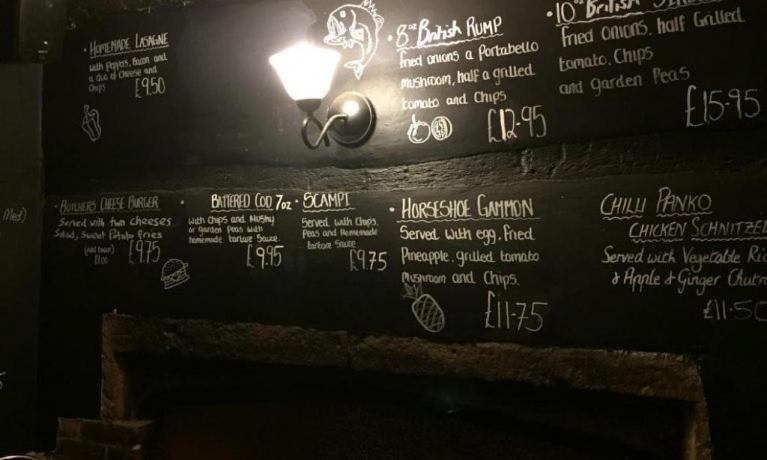 • Homemade Lasagne
with peppers, bacon and
a duo of cheese and
chips
£9.50
• 8oz British Rump
Fried onions a Portabello
mushroom, half a grilled
tomato and chips
£12.95
• 10oz British
Fried onions, half Grilled
tomato, chips
and garden Peas
£15.95
Med)
• Butchers Cheese Burger
Served with two cheeses
Salad, Sweet Potato fries
(Add bacon)
£1.00
£9.75
• Battered Cod 7oz
with chips and mushy
or garden peas with
homemade tartare sauce
£9.95
• Scampi
Served with chips,
Peas and Homemade
tartare sauce
£9.75
• Horseshoe Gammon
Served with egg, fried
Pineapple, grilled tomato
Mushroom and chips.
£11.75
Chilli Panko
Chicken Schnitzel
Served with Vegetable Ric
& Apple & Ginger Chutn
£11.50